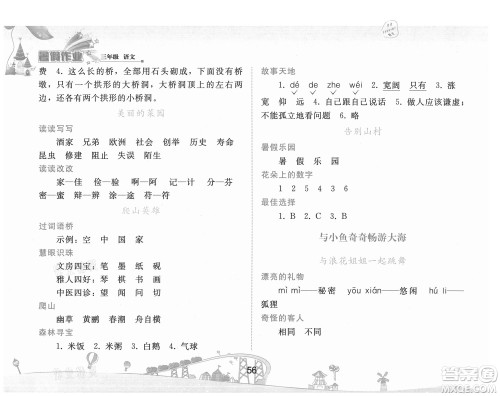 暑假作业 三年级 语文
费 4. 这么长的桥，全部用石头砌成，下面没有桥
墩，只有一个拱形的大桥洞，大桥洞顶上的左右
两边，还各有两个拱形的小桥洞。
美丽的菜园
读读写写
酒家 兄弟 欧洲 社会 创举 历史 寿命
昆虫 蔬菜 翻动 玉米
读读改改
家—佳 传—俭 脸—险 树—村 计—分—芬
密—蜜 辩—辨 途—涂 符—符
爬山英雄
过词语桥
示例：空 中 国 家
慧眼识珠
文房四宝：笔 墨 纸 砚
雅人四好：琴 棋 书 画
中医四诊：望 闻 问 切
爬山
幽草 黄鹂 春潮 深树
森林寻宝
1. 米饭 2. 米粥 3. 白鹅 4. 气球
故事天地
1. dé de zhe wéi 2. 宽阔 只有 3. 涨
宽 仰 远 4. 自己跟自己说话 5. 做人应该谦虚；
不能孤立地看问题 6. 略
告别山村
暑假乐园
暑 假 乐 园
花朵上的数字
1 2 5 4 3 6
最佳选择
1. B 2. B 3. C
与小鱼奇奇畅游大海
与浪花姐姐一起跳舞
漂亮的礼物
mì mì——秘密 yōu xián——悠闲 hú li——
狐狸
奇怪的客人
相同 不同
56